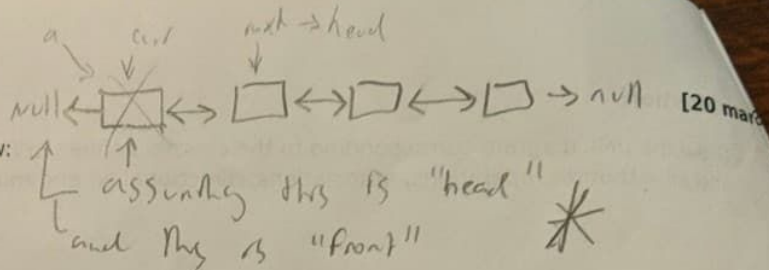 a cur nxt → head
null null [20 mar
v:
assuming this is "head"
and this is "front"